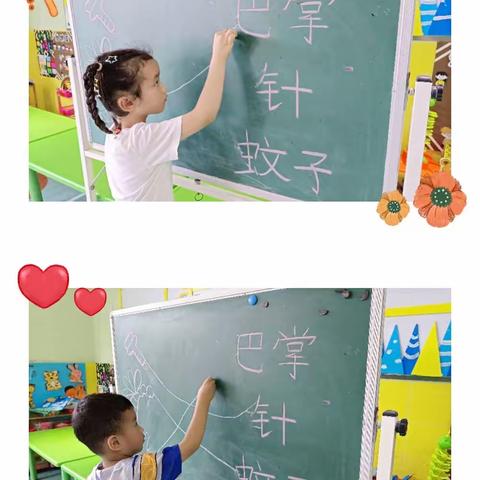 巴掌
针
蚊子
巴掌
针
蚊子